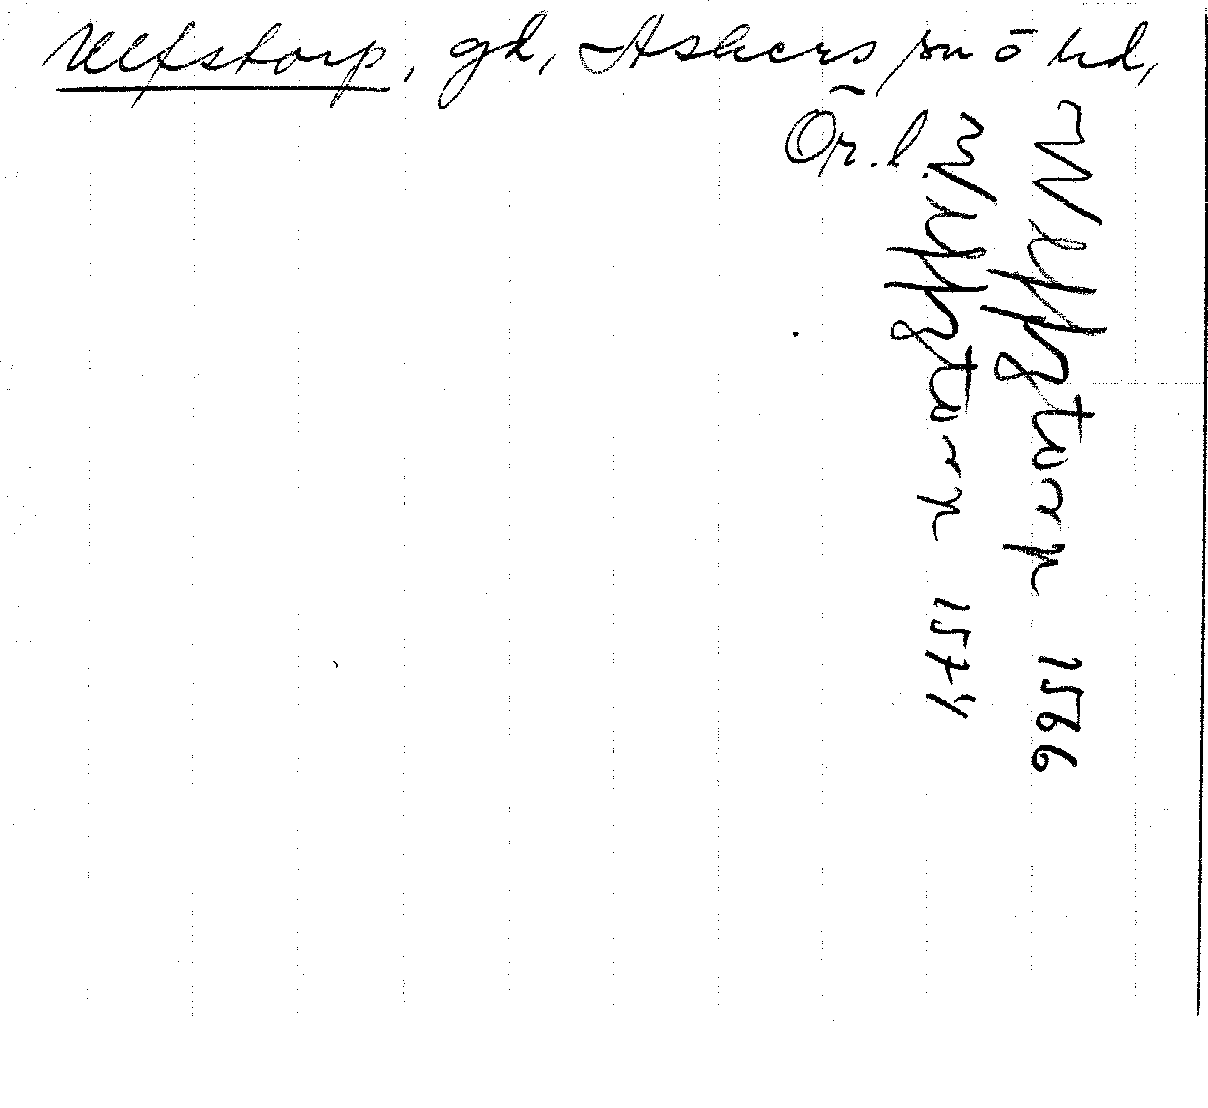 Ulfstorp, gd, Askers sn o hd,
Ör. l.
Wlffztorp 1566
Wlffztorp 1574